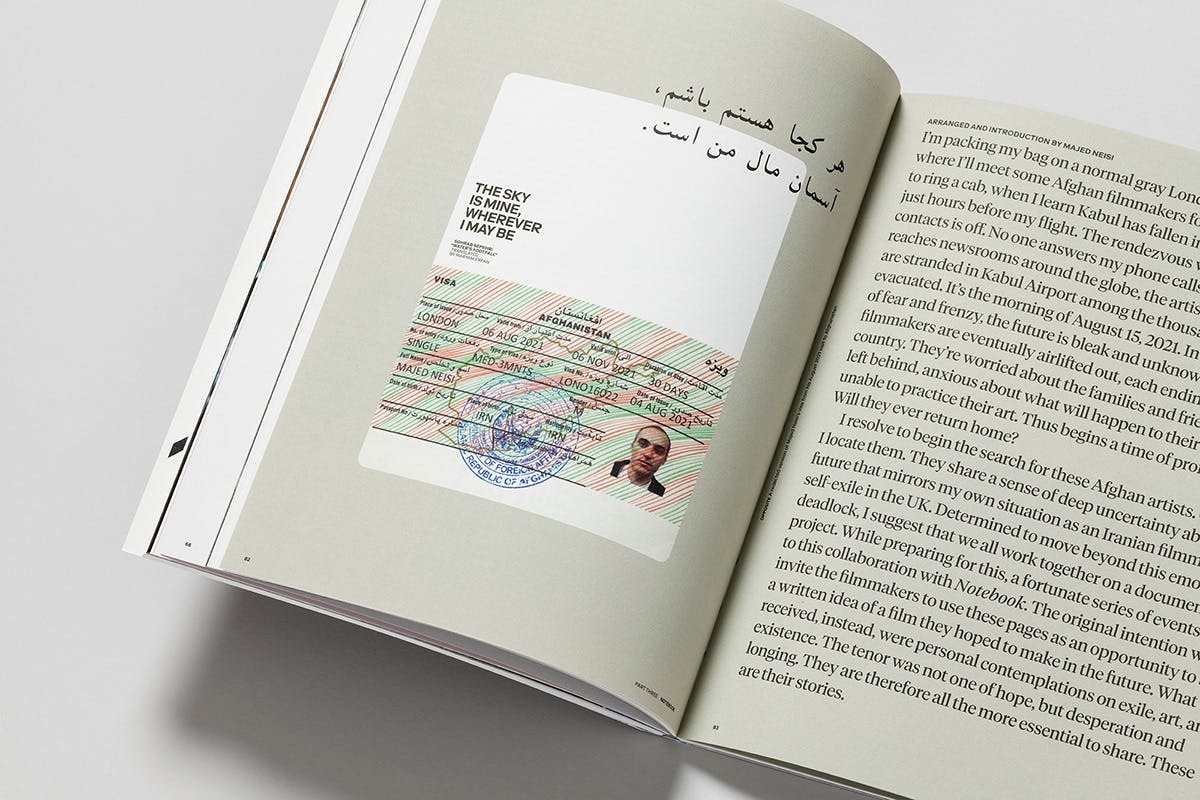 هر کجا هستم باشم،
آسمان مال من است.
THE SKY
IS MINE,
WHEREVER
I MAY BE
SOHRAB SEPEHRI
"WATER'S FOOTFALL"
TRANSLATED
BY MARYAM
VISA
افغانستان
AFGHANISTAN
ویزه
Place of issue / محل صدور
Valid from /
Valid until /
Duration of stay /
LONDON
06 AUG 2021
06 NOV 2021
30 DAYS
No. of entry /
Type of Visa /
Visa No /
Date of Issue /
SINGLE
MED-3MNTS
LONO16022
04 AUG 2021
Full Name /
MAJED NEISI
M
Date of birth /
Place of birth /
IRN
IRN
Passport No /
OF FOREIGN AFFAIRS
REPUBLIC OF AFGHA
66
82
PART THREE NOTEBOOK
ARRANGED AND INTRODUCTION BY MAJED NEISI
I'm packing my bag on a normal gray Lon
where I'll meet some Afghan filmmakers fo
to ring a cab, when I learn Kabul has fallen in
just hours before my flight. The rendezvous w
contacts is off. No one answers my phone calls
reaches newsrooms around the globe, the artis
are stranded in Kabul Airport among the thous
evacuated. It's the morning of August 15, 2021. In
of fear and frenzy, the future is bleak and unknow
filmmakers are eventually airlifted out, each ending
country. They're worried about the families and frie
left behind, anxious about what will happen to their
unable to practice their art. Thus begins a time of pro
Will they ever return home?
I resolve to begin the search for these Afghan artists.
I locate them. They share a sense of deep uncertainty ab
future that mirrors my own situation as an Iranian filmm
self-exile in the UK. Determined to move beyond this emo
deadlock, I suggest that we all work together on a documen
project. While preparing for this, a fortunate series of events
to this collaboration with Notebook. The original intention w
invite the filmmakers to use these pages as an opportunity to
a written idea of a film they hoped to make in the future. What
received, instead, were personal contemplations on exile, art, an
existence. The tenor was not one of hope, but desperation and
longing. They are therefore all the more essential to share. These
are their stories.
83